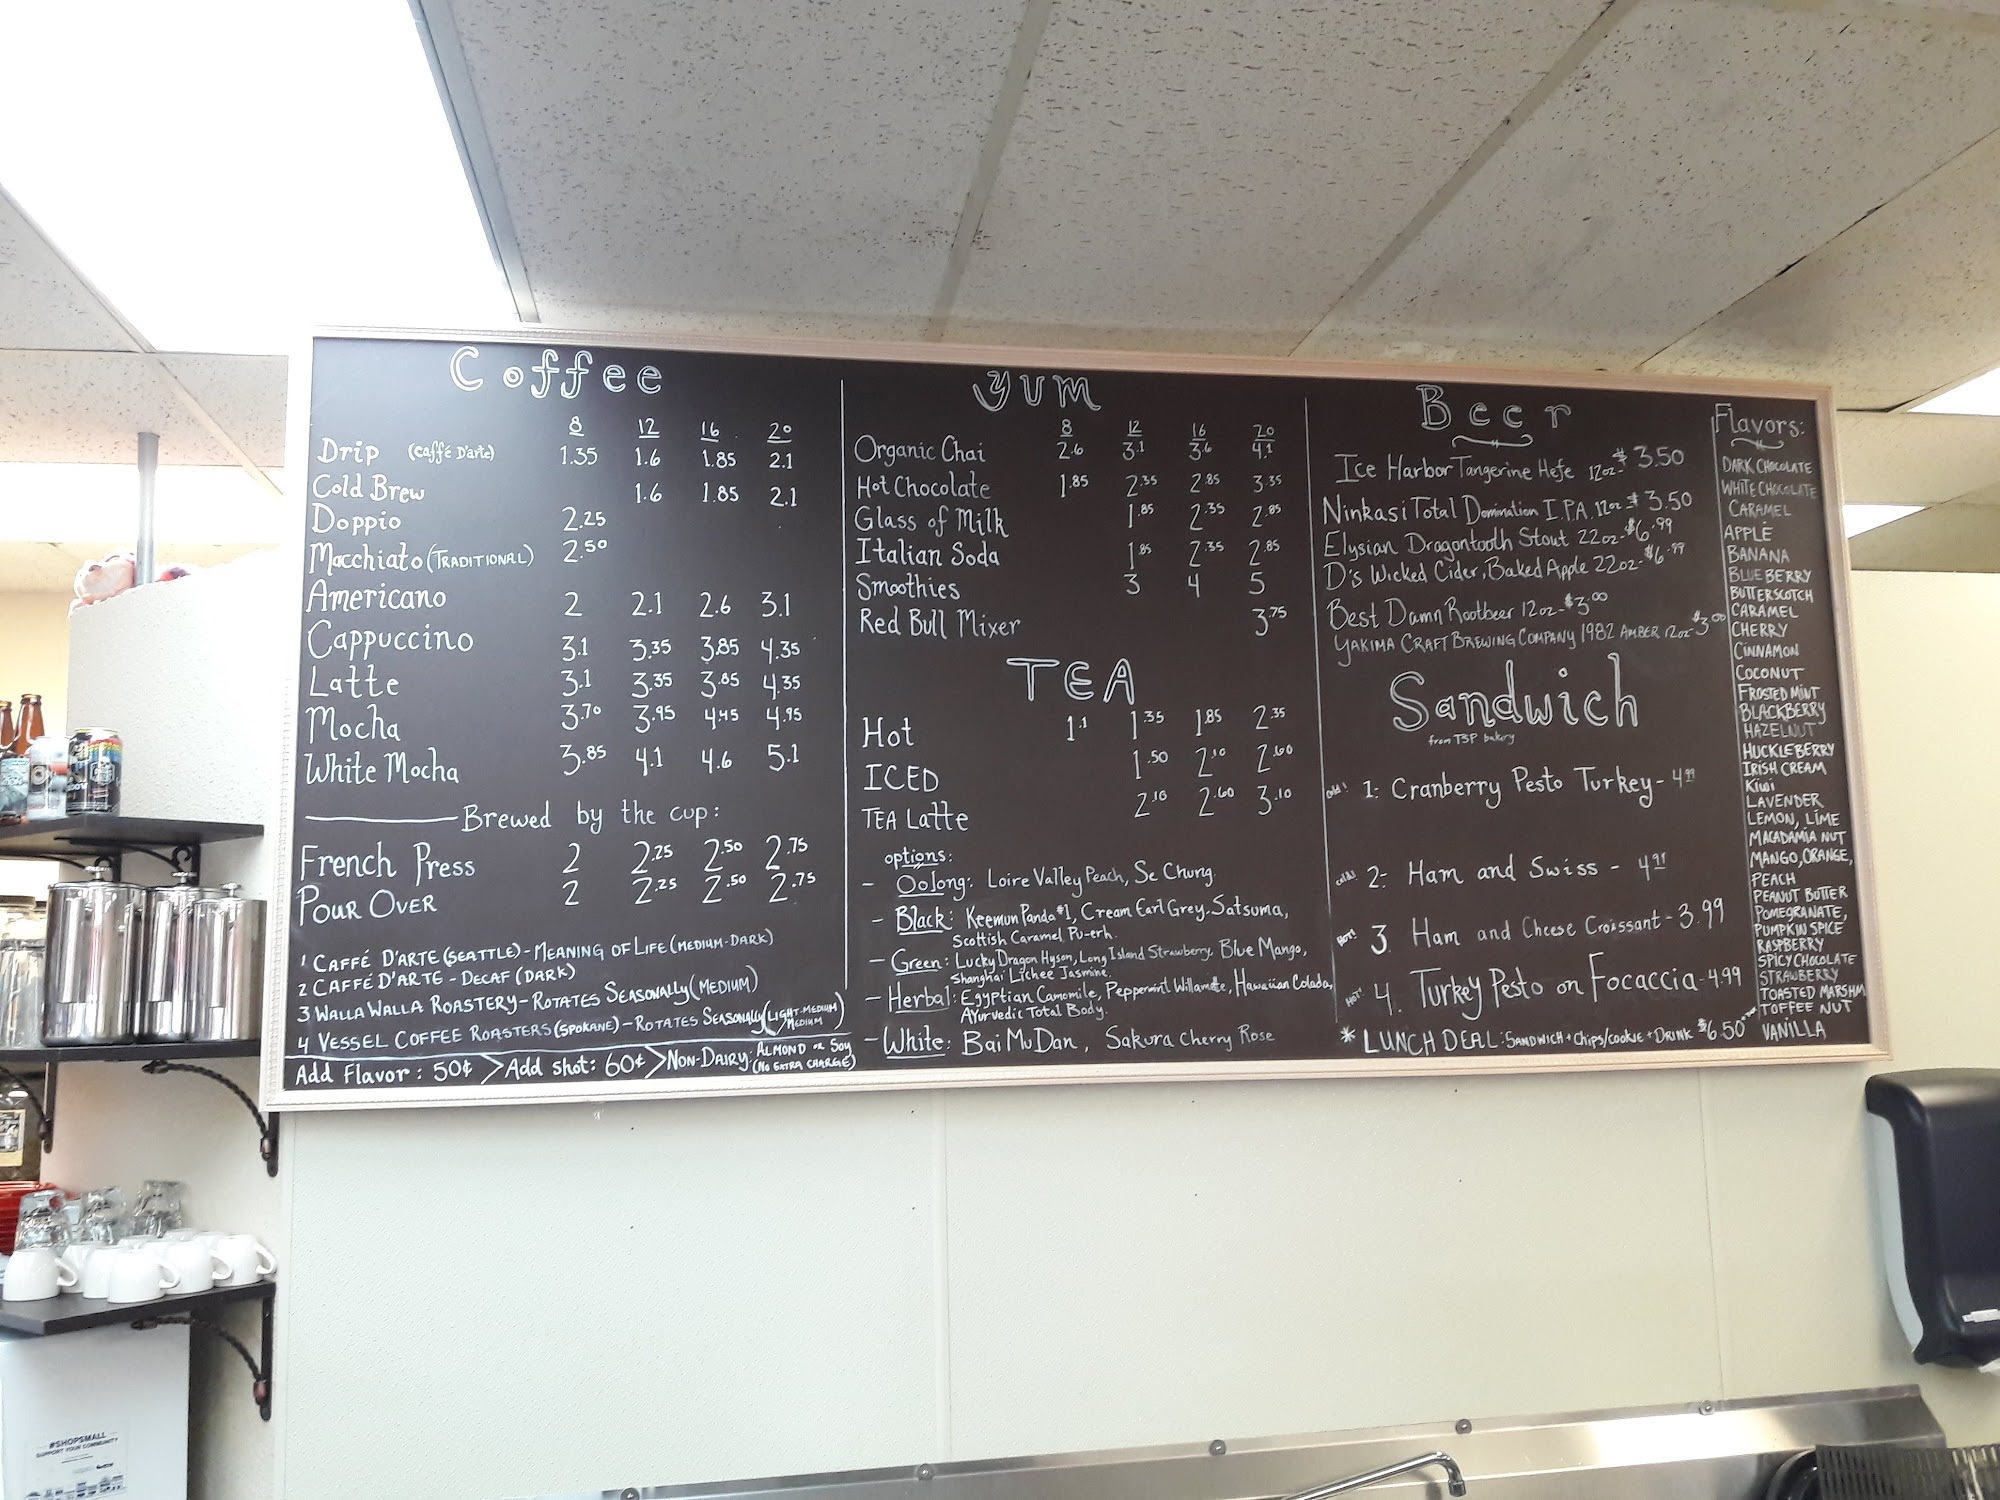 Coffee
8 12 16 20
Drip (Caffé D'arte) 1.35 1.6 1.85 2.1
Cold Brew 1.6 1.85 2.1
Doppio 2.25
Macchiato (TRADITIONAL) 2.50
Americano 2 2.1 2.6 3.1
Cappuccino 3.1 3.35 3.85 4.35
Latte 3.1 3.35 3.85 4.35
Mocha 3.70 3.95 4.45 4.95
White Mocha 3.85 4.1 4.6 5.1
Brewed by the cup:
French Press 2 2.25 2.50 2.75
POUR OVER 2 2.25 2.50 2.75
1 CAFFÉ D'ARTE (SEATTLE) - MEANING OF LIFE (MEDIUM-DARK)
2 CAFFÉ D'ARTE - DECAF (DARK)
3 WALLA WALLA ROASTERY - ROTATES SEASONALLY (MEDIUM)
4 VESSEL COFFEE ROASTERS (SPOKANE) - ROTATES SEASONALLY (LIGHT-MEDIUM MEDIUM)
Add Flavor: 50¢ > Add shot: 60¢ > NON-DAIRY: ALMOND OR SOY (NO EXTRA CHARGE)
YUM
8 12 16 20
Organic Chai 2.6 3.1 3.6 4.1
Hot Chocolate 1.85 2.35 2.85 3.35
Glass of Milk 1.85 2.35 2.85
Italian Soda 1.85 2.35 2.85
Smoothies 3 4 5
Red Bull Mixer 3.75
TEA
Hot 1.1 1.35 1.85 2.35
ICED 1.50 2.10 2.60
TEA Latte 2.10 2.60 3.10
options:
- Oolong: Loire Valley Peach, Se Chung.
- Black: Keemun Panda #1, Cream Earl Grey, Satsuma,
Scottish Caramel Pu-erh.
- Green: Lucky Dragon Hyson, Long Island Strawberry, Blue Mango,
Shanghai Lichee Jasmine.
- Herbal: Egyptian Camomile, Peppermint Willamette, Hawaiian Colada,
Ayurvedic Total Body.
- White: Bai Mu Dan, Sakura Cherry Rose
Beer
Ice Harbor Tangerine Hefe 12oz - $3.50
Ninkasi Total Domination I.P.A. 12oz - $3.50
Elysian Dragontooth Stout 22oz - $6.99
D's Wicked Cider, Baked Apple 22oz - $6.99
Best Damn Rootbeer 12oz - $3.00
YAKIMA CRAFT BREWING COMPANY 1982 AMBER 12oz $3.00
Sandwich
from TSP bakery
cold! 1: Cranberry Pesto Turkey - 4.99
cold! 2: Ham and Swiss - 4.99
HOT! 3. Ham and Cheese Croissant - 3.99
HOT! 4. Turkey Pesto on Focaccia - 4.99
* LUNCH DEAL: SANDWICH + Chips/cookie + DRINK $6.50
Flavors:
DARK CHOCOLATE
WHITE CHOCOLATE
CARAMEL
APPLE
BANANA
BLUEBERRY
BUTTERSCOTCH
CARAMEL
CHERRY
CINNAMON
COCONUT
FROSTED MINT
BLACKBERRY
HAZELNUT
HUCKLEBERRY
IRISH CREAM
Kiwi
LAVENDER
LEMON, LIME
MACADAMIA NUT
MANGO, ORANGE,
PEACH
PEANUT BUTTER
POMEGRANATE,
PUMPKIN SPICE
RASPBERRY
SPICY CHOCOLATE
STRAWBERRY
TOASTED MARSHM
TOFFEE NUT
VANILLA
#SHOPSMALL
SUPPORT YOUR COMMUNITY